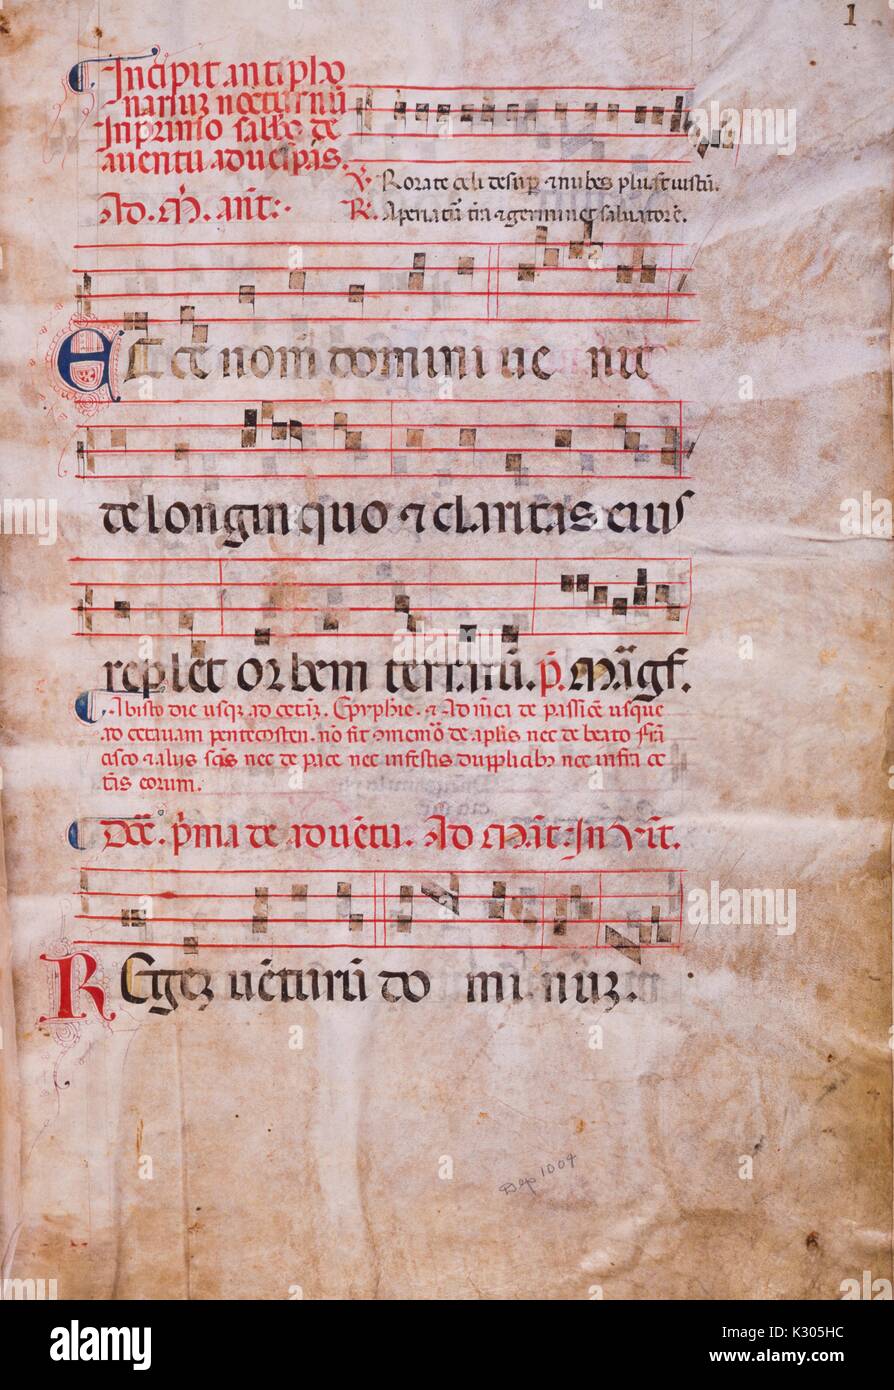 1
Incipit antipho
nariuz nocturnū
In primo sabb̄o de
aventu ad vesp̄as.
Ad. M̄. ant̄:
℣. Rorate celi desup̄ ⁊ nubes pluāt iustū.
℟. Aperiat̄ t̄ra ⁊ germinet salvatorē.
Ecce nom̄ domini ve nit
de longin quo ⁊ claritas eius
replet orbem terrarū. p̄. Māgf.
Ab isto die usq₃ ad octavā Epyphīe. ⁊ A dn̄ica de passiōe usque
ad octavam pentecosten. nō fit ↄmemō de apl̄is nec de beato frā
cisco ⁊ aliis sc̄is nec de pace nec in festis dupplicib₃ nec infra oc
tās eorum.
Dn̄c̄. p̄ma de advētu. Ad Māt̄. Invīt.
Regez vēturū do mi nuz.
Dep 1004
alamy stock photo
K305HC
www.alamy.com